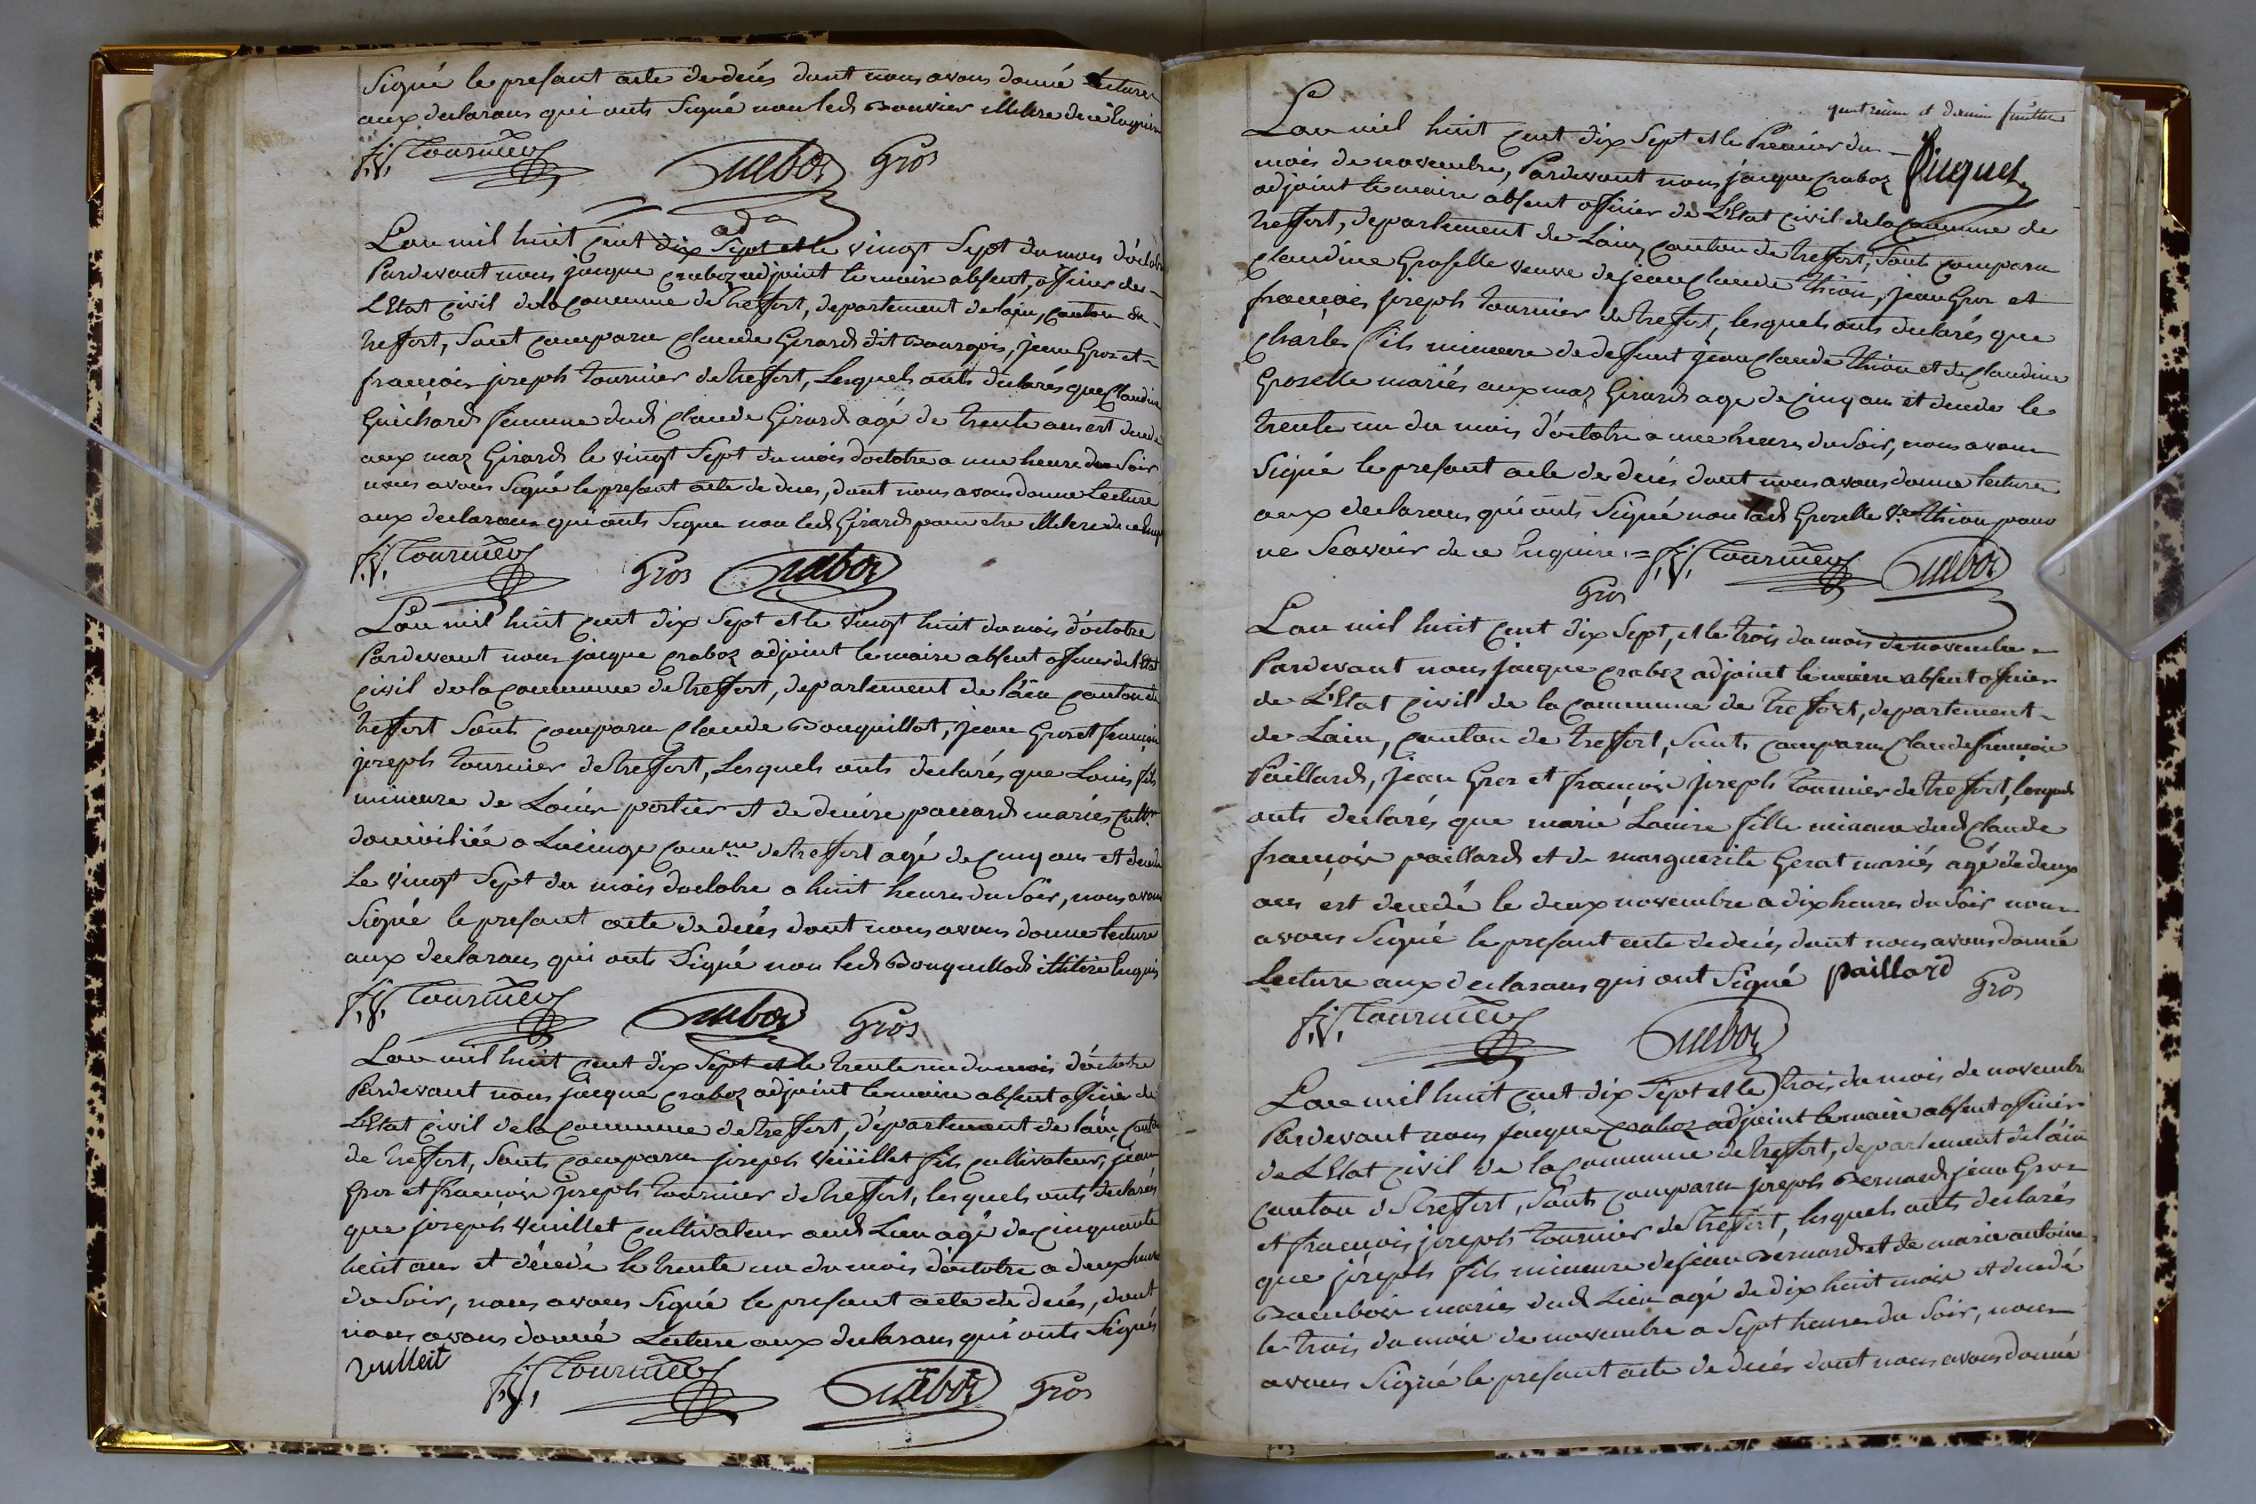 Signé le present acte de decés dont nous avons donné lecture
aux declarans qui onts Signé non led Bouvier illitere de ce Enquis
f. j. Tournier Craboz Gros
L'an mil huit cent dix Sept et le vingt Sept du mois d'octobre
Pardevant nous jacque Craboz adjoint le maire absent, officier de
L'Etat civil de la commune de Treffort, departement de lain, canton de
Treffort, Sont comparu Claude Girard dit Bourgois, jean Gros et
françois joseph Tournier de Treffort, Lesquels onts declarés que Claudine
Guichard femme dud Claude Girard agé de trente ans est decedé
aux maz Girard le vingt Sept du mois d'octobre a une heure du Soir
nous avons Signé le present acte de deces, dont nous avons donné Lecture
aux declarans qui onts Signé non led Girard pour etre illitere de ce Enquis
f. j. Tournier Gros Craboz
L'an mil huit cent dix Sept et le vingt huit du mois d'octobre
Pardevant nous jacque Craboz adjoint le maire absent officier de l'Etat
civil de la commune de Treffort, departement de l'ain canton de
Treffort Sonts comparu Claude Bouquillot, jean Gros et françois
joseph Tournier de Treffort, Lesquels onts declarés que Louis fils
mineure de Louis portier et de denise pauard mariés Cult.
domiciliée a Lucinge Comne de Treffort agé de cinq ans et decedé
Le vingt Sept du mois d'octobre a huit heures du Soir, nous avons
Signé le present acte de decés dont nous avons donné lecture
aux declarans qui onts Signé non led Bouquillod illitere Enquis
f. j. Tournier Craboz Gros
L'an mil huit cent dix Sept et le trente un du mois d'octobre
Pardevant nous jacque Craboz adjoint le maire absent officier de
L'Etat civil de la commune de Treffort, departement de l'ain, canton
de Treffort, Sonts comparu joseph Veüillet fils cultivateur, jean
Gros et françois joseph Tournier de Treffort, lesquels onts declarés
que joseph Veuillet cultivateur aud Lieu agé de cinquante
huit ans et décedé le trente un du mois d'octobre a deux heures
du Soir, nous avons Signé le present acte de decés, dont
nous avons donné Lecture aux declarans qui onts Signés
Vulleit f. j. Tournier Craboz Gros
quatrieme et dernier feuillet
Puquet
L'an mil huit cent dix Sept et le Premier du
mois de novembre, Pardevant nous jacque Craboz
adjoint le maire absent officier de L'Etat Civil de la Commune de
Treffort, departement de Lain, canton de Treffort, Sonts comparu
Claudine Groselle veuve de jean Claude Thion, jean Gros et
françois joseph Tournier de Treffort, lesquels onts declarés que
Charles fils mineure de deffunt jean Claude Thion et de Claudine
Groselle mariés aux maz Girard age de cinq ans et decedes le
trente un du mois d'octobre a une heures du Soir, nous avons
Signé le present acte de decés dont nous avons donné lecture
aux declarans qui onts Signé non lad Groselle Ve Thion pour
ne Scavoir de ce Enquise = f. j. Tournier Craboz
Gros
L'an mil huit cent dix Sept, et le trois du mois de novembre
Pardevant nous jacque Craboz adjoint le maire absent officier
de L'Etat Civil de la commune de Treffort, departement
de Lain, canton de Treffort, Sonts comparu Claude françois
Paillard, jean Gros et françois joseph Tournier de Treffort, lesquels
onts declarés que marie Louise fille mineure dud Claude
françois paillard et de marguerite Gerat mariés agé de deux
ans est decedé le deux novembre a dix heures du Soir nous
avons Signé le present acte de decés dont nous avons donné
Lecture aux declarans qui ont Signé paillard
Gros
f. j. Tournier Craboz
L'an mil huit cent dix Sept et le trois du mois de novembre
Pardevant nous jacque Craboz adjoint le maire absent officier
de L'Etat Civil de la commune de Treffort, departement de l'ain
canton de Treffort, Sonts comparu joseph Bernard jean Gros
et françois joseph Tournier de Treffort, lesquels onts declarés
que joseph fils mineure de jean Bernard et de marie antoine
mariés dud Lieu agé de dix huit mois et decedé
le trois du mois de novembre a Sept heures du Soir, nous
avons Signé le present acte de decés dont nous avons donné